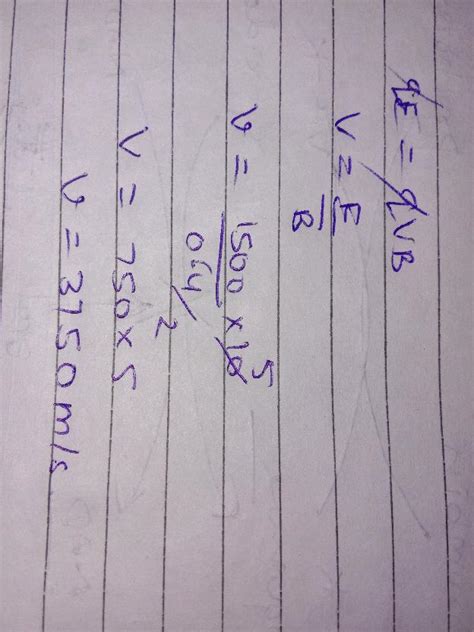 qE = qVB
V = E/B
v = 1500/0.4 2 × 10 5
V = 750 × 5
v = 3750 m/s